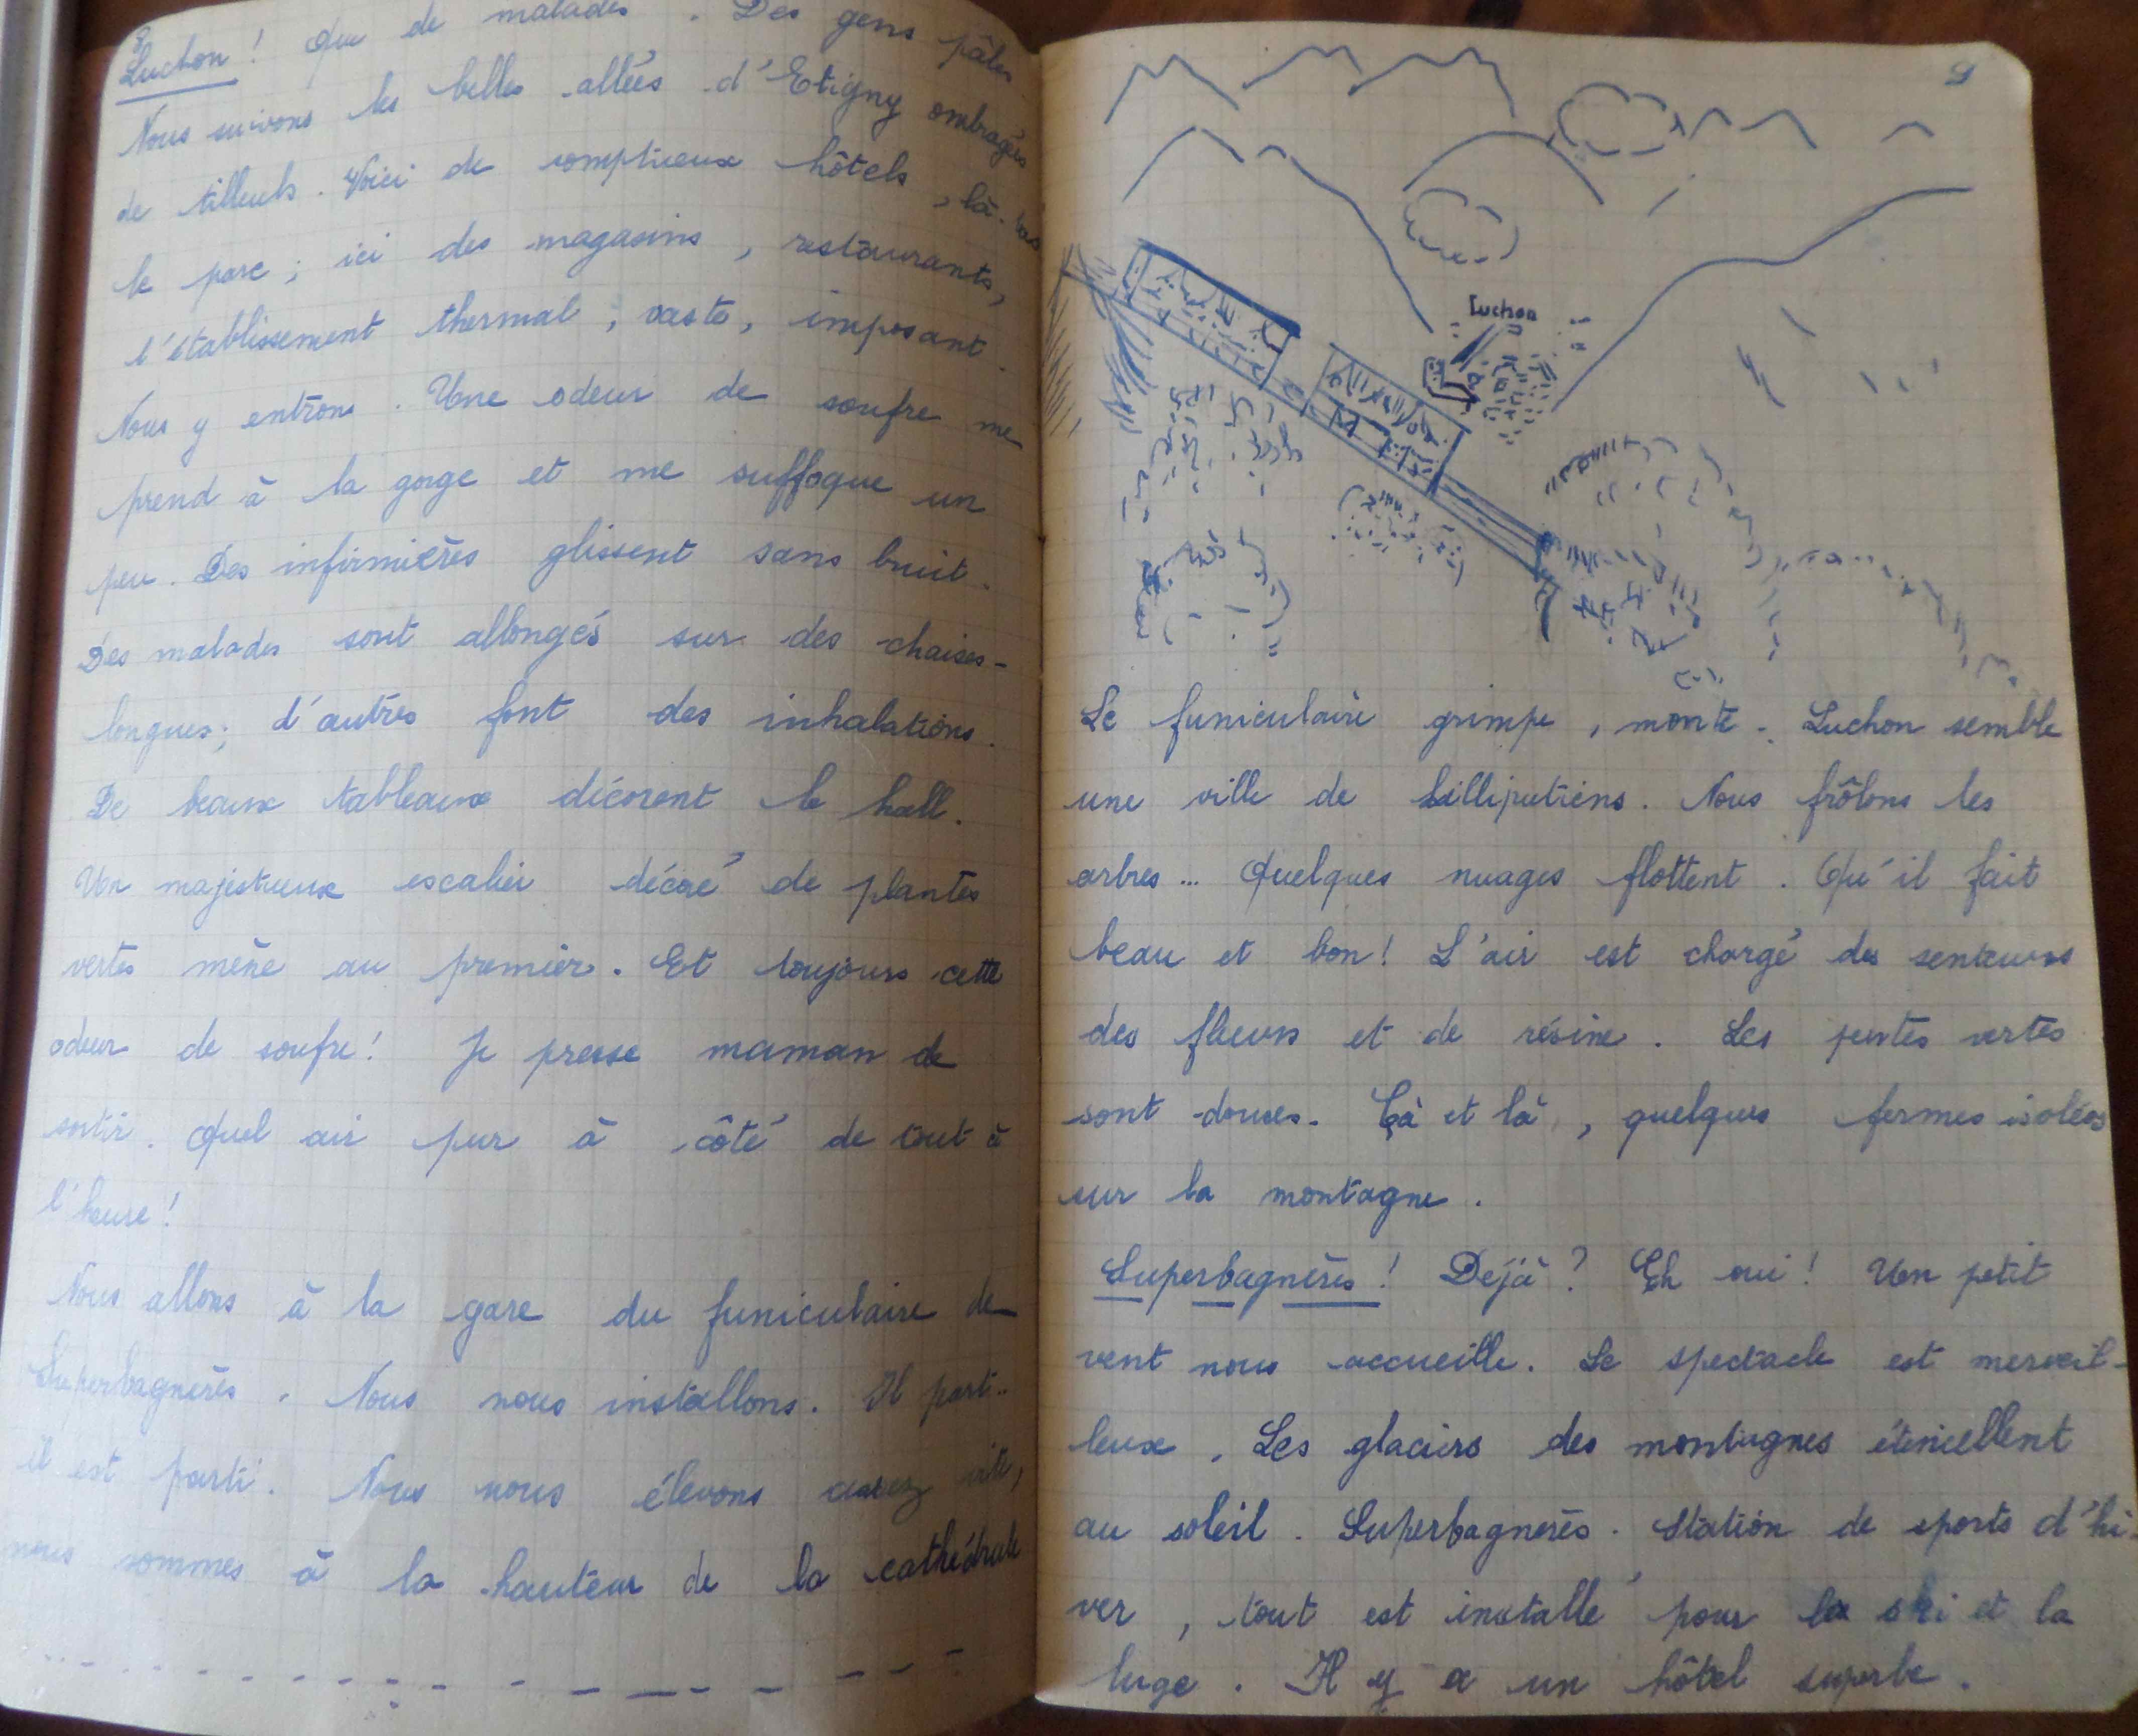 8
Luchon ! Que de malades . Des gens pâles
Nous suivons les belles allées d'Etigny ombragées
de tilleuls . Voici de somptueux hôtels , là-bas
le parc ; ici des magasins , restaurants,
l'établissement thermal , vaste, imposant .
Nous y entrons . Une odeur de soufre me
prend à la gorge et me suffoque un
peu . Des infirmières glissent sans bruit .
Des malades sont allongés sur des chaises-
longues; d'autres font des inhalations .
De beaux tableaux décorent le hall .
Un majestueux escalier décoré de plantes
vertes mène au premier . Et toujours cette
odeur de soufre! Je presse maman de
sortir . Quel air pur à côté de tout à
l'heure !
Nous allons à la gare du funiculaire de
Superbagnères . Nous nous installons . Il part..
il est parti . Nous nous élevons assez vite,
nous sommes à la hauteur de la cathédrale
9
Luchon
Le funiculaire grimpe , monte . Luchon semble
une ville de Lilliputiens . Nous frôlons les
arbres ... Quelques nuages flottent . Qu'il fait
beau et bon! L'air est chargé des senteurs
des fleurs et de résine . Les pentes vertes
sont douces . Çà et là , quelques fermes isolées
sur la montagne .
Superbagnères ! Déjà ? Eh oui ! Un petit
vent nous accueille . Le spectacle est merveil-
leux . Les glaciers des montagnes étincellent
au soleil . Superbagnères . Station de sports d'hi-
ver , tout est installé pour le ski et la
luge . Il y a un hôtel superbe .